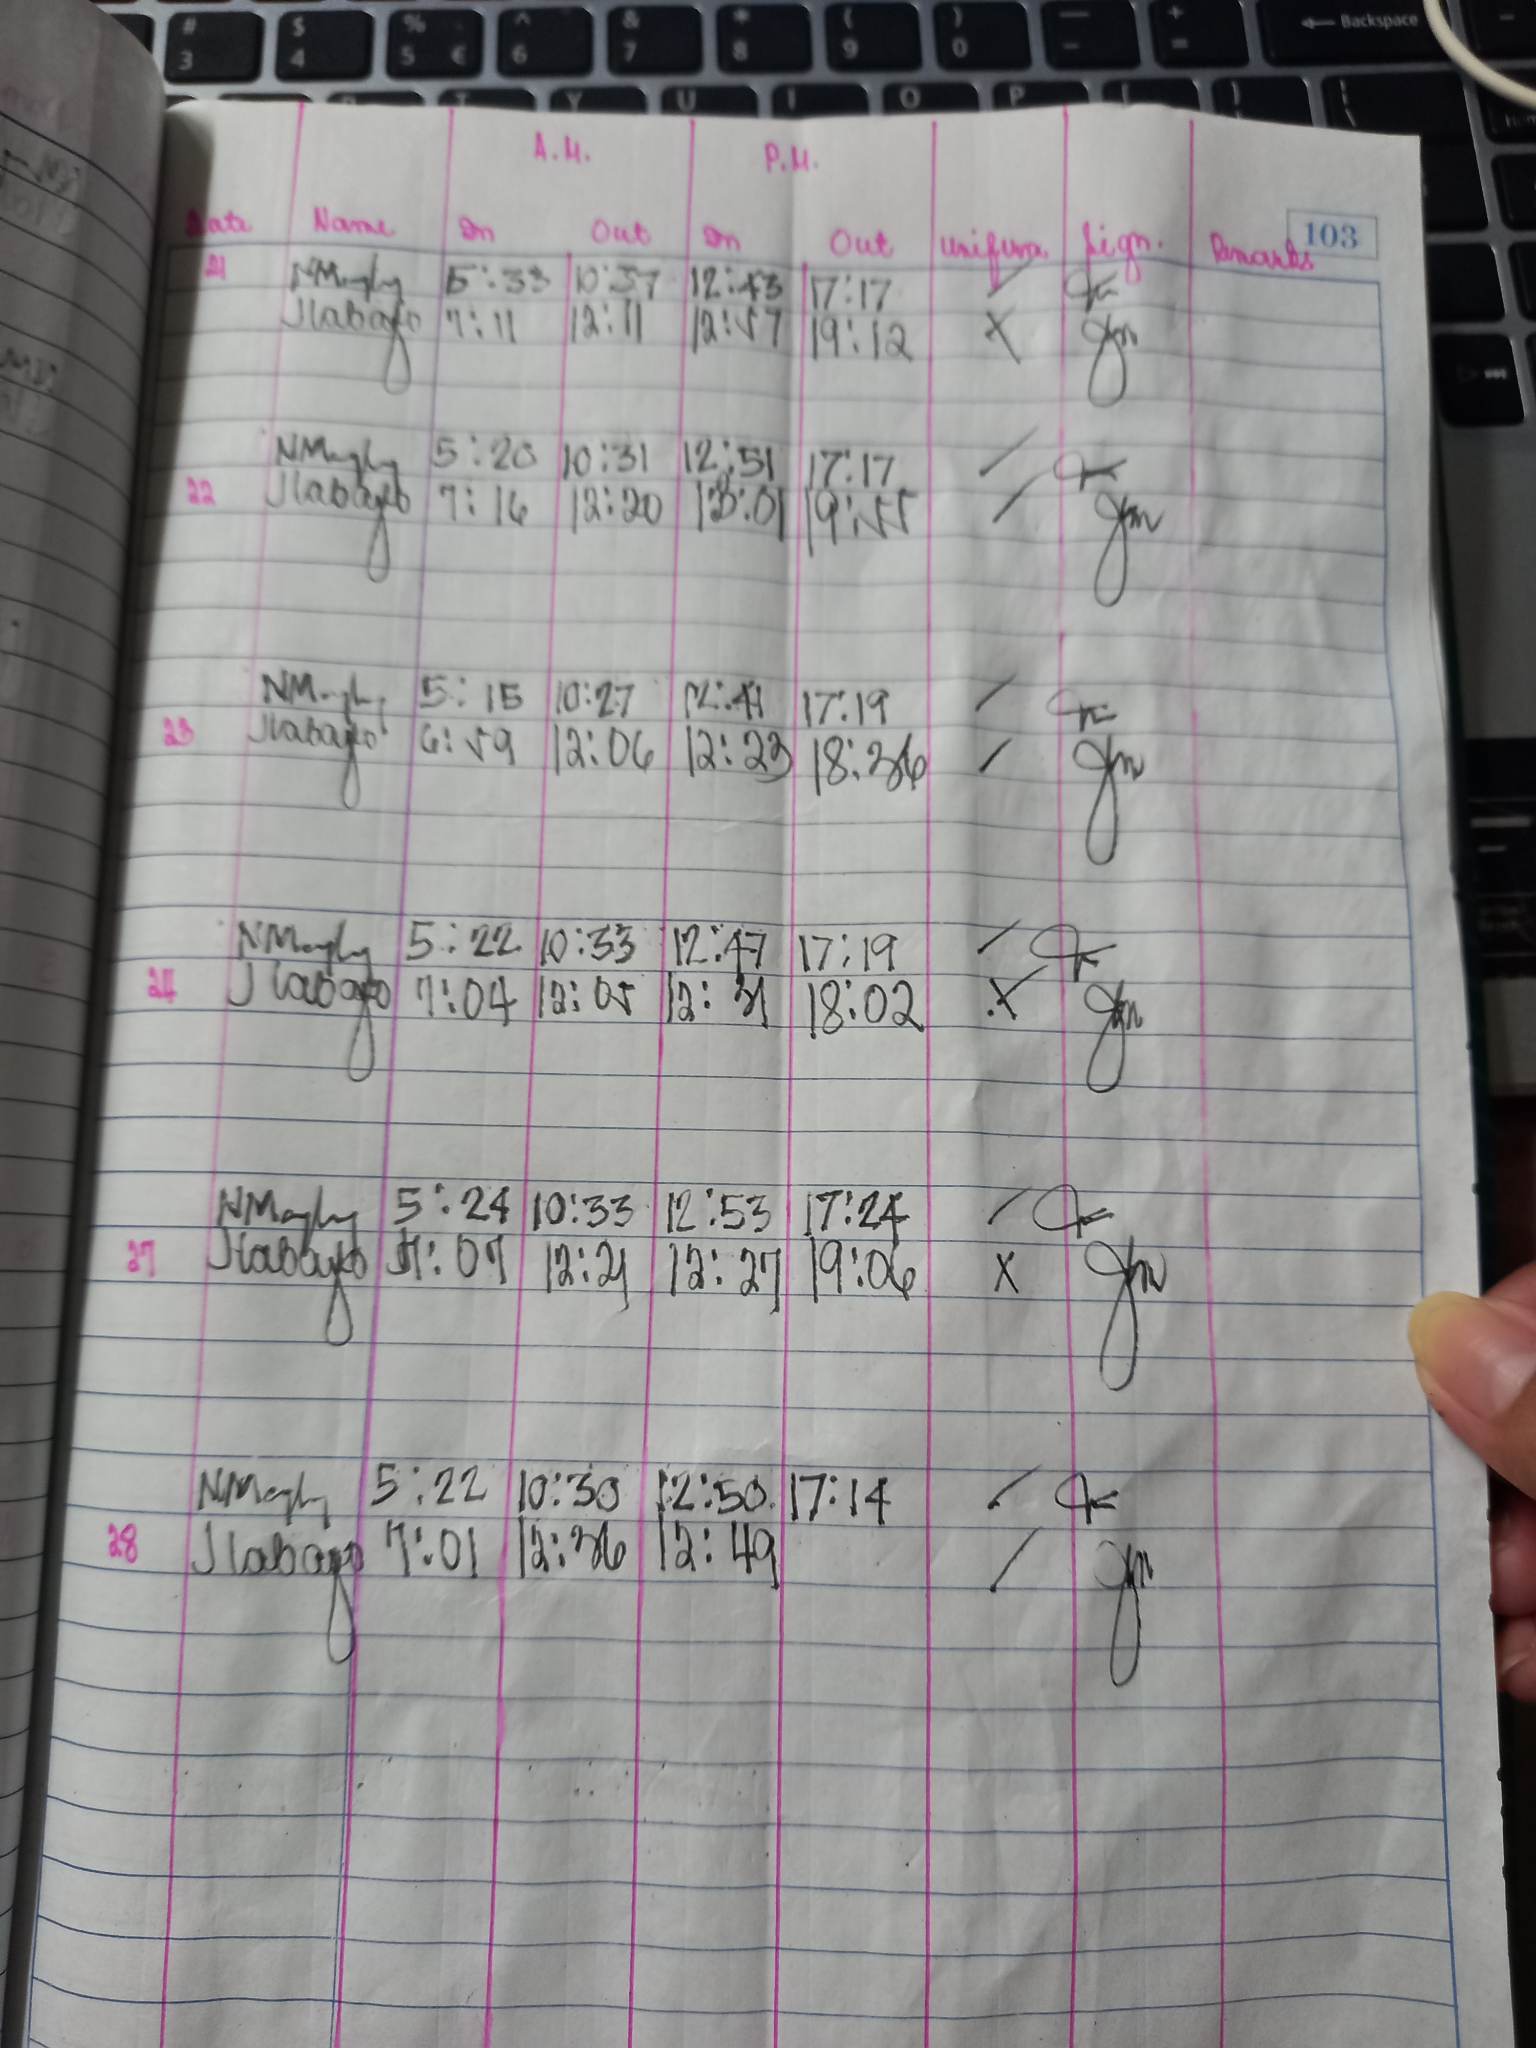 # 3 $ 4 % 5 € ^ 6 & 7 * 8 ( 9 ) 0 — - + = ← Backspace
T Y U I O P
A.M. P.M.
103
Date Name In Out In Out Uniform Sign. Remarks
21 NMaghy 5:33 10:37 12:43 17:17 /
Jlabayo 7:11 12:11 12:57 19:12 X
NMaghy 5:20 10:31 12:51 17:17 /
22 Jlabayo 7:16 12:20 13:01 19:55 /
NMaghy 5:15 10:27 12:41 17:19 /
23 Jlabayo 6:59 12:06 12:23 18:36 /
NMaghy 5:22 10:33 12:47 17:19 /
24 Jlabayo 7:04 12:05 12:31 18:02 X
NMaghy 5:24 10:33 12:53 17:24 /
27 Jlabayo 7:07 12:21 12:27 19:06 X
NMaghy 5:22 10:30 12:50 17:14 /
28 Jlabayo 7:01 12:36 12:49 /